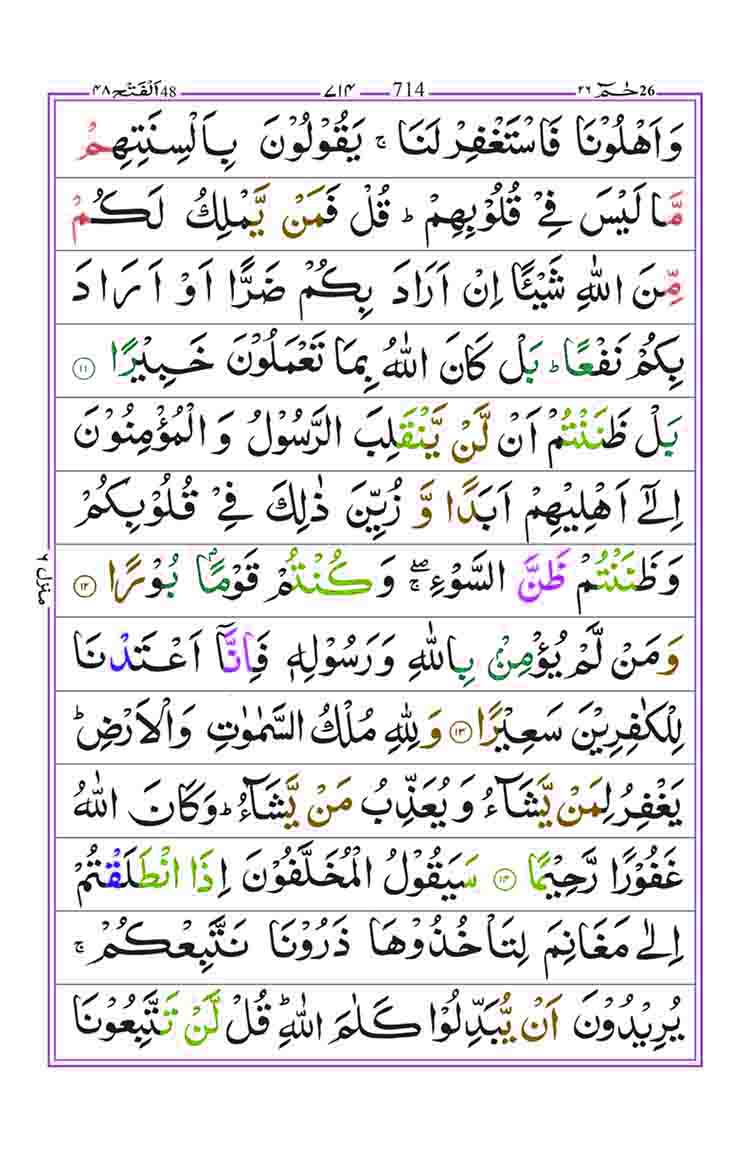 48 اَلْفَتْح ۴۸ ۷۱۴ 714 حٰـمٓ ۲۶ 26
وَاَهْلُوْنَا فَاسْتَغْفِرْ لَنَا ۚ يَقُوْلُوْنَ بِاَلْسِنَتِهِمْ
مَّا لَيْسَ فِيْ قُلُوْبِهِمْ ؕ قُلْ فَمَنْ يَّمْلِكُ لَكُمْ
مِّنَ اللّٰهِ شَيْـًٔا اِنْ اَرَادَ بِكُمْ ضَرًّا اَوْ اَرَادَ
بِكُمْ نَفْعًا ؕ بَلْ كَانَ اللّٰهُ بِمَا تَعْمَلُوْنَ خَبِيْرًا ۱۱
بَلْ ظَنَنْتُمْ اَنْ لَّنْ يَّنْقَلِبَ الرَّسُوْلُ وَ الْمُؤْمِنُوْنَ
اِلٰٓى اَهْلِيْهِمْ اَبَدًا وَّ زُيِّنَ ذٰلِكَ فِيْ قُلُوْبِكُمْ
وَظَنَنْتُمْ ظَنَّ السَّوْءِ ۖۚ وَكُنْتُمْ قَوْمًاۢ بُوْرًا ۱۲
وَمَنْ لَّمْ يُؤْمِنْۢ بِاللّٰهِ وَرَسُوْلِهٖ فَاِنَّاۤ اَعْتَدْنَا
لِلْكٰفِرِيْنَ سَعِيْرًا ۱۳ وَلِلّٰهِ مُلْكُ السَّمٰوٰتِ وَالْاَرْضِ ؕ
يَغْفِرُ لِمَنْ يَّشَآءُ وَيُعَذِّبُ مَنْ يَّشَآءُ ؕ وَكَانَ اللّٰهُ
غَفُوْرًا رَّحِيْمًا ۱۴ سَيَقُوْلُ الْمُخَلَّفُوْنَ اِذَا انْطَلَقْتُمْ
اِلٰى مَغَانِمَ لِتَاْخُذُوْهَا ذَرُوْنَا نَتَّبِعْكُمْ ۚ
يُرِيْدُوْنَ اَنْ يُّبَدِّلُوْا كَلٰمَ اللّٰهِ ؕ قُلْ لَّنْ تَتَّبِعُوْنَا
منزل ۶